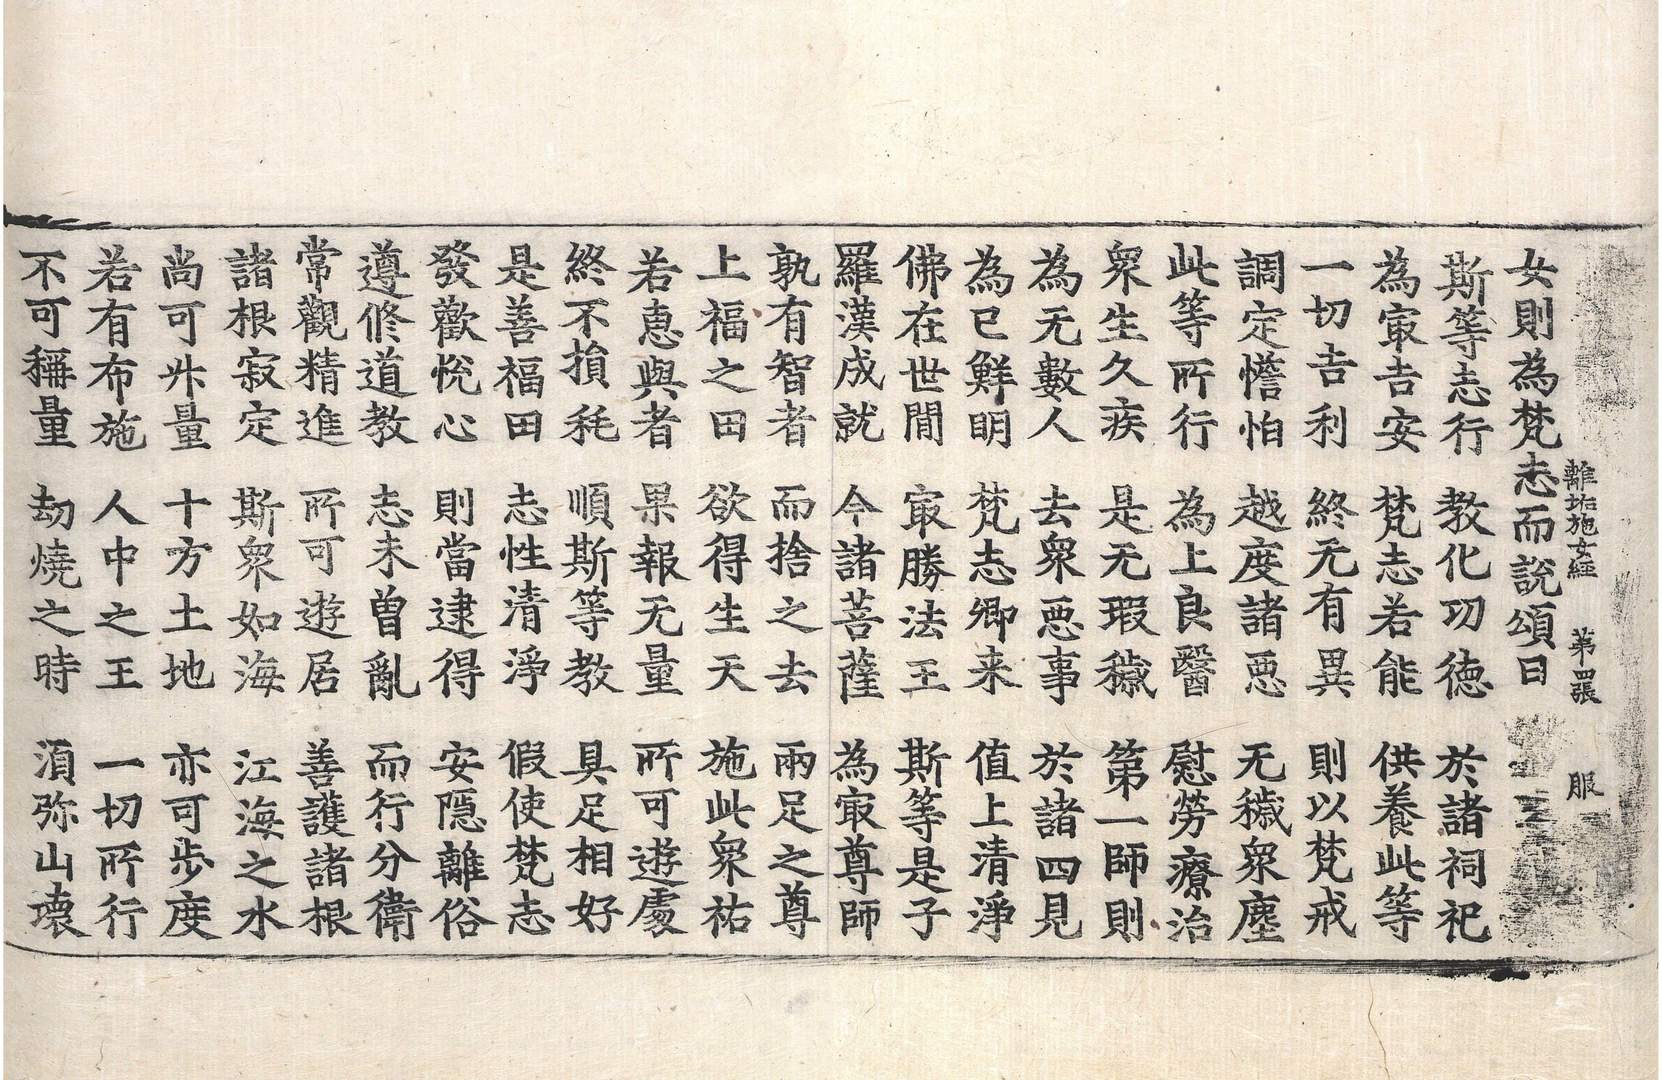 離垢施女經　第四張　服
女則為梵志而說頌曰
斯等志行　教化功德　於諸祠祀
為㝡吉安　梵志若能　供養此等
一切吉利　終无有異　則以梵戒
調定憺怕　越度諸惡　无穢衆塵
此等所行　為上良醫　慰勞療治
衆生久疾　是无瑕穢　第一師則
為无數人　去衆惡事　於諸四見
為已鮮明　梵志卿来　值上清淨
佛在世間　㝡勝法王　斯等是子
羅漢成就　今諸菩薩　為㝡尊師
孰有智者　而捨之去　兩足之尊
上福之田　欲得生天　施此衆祐
若惠與者　果報无量　所可遊處
終不損耗　順斯等教　具足相好
是善福田　志性清淨　假使梵志
發歡悅心　則當逮得　安隱離俗
遵修道教　志未曾亂　而行分衛
常觀精進　所可遊居　善護諸根
諸根寂定　斯衆如海　江海之水
尚可升量　十方土地　亦可步度
若有布施　人中之王　一切所行
不可稱量　劫燒之時　須弥山壞